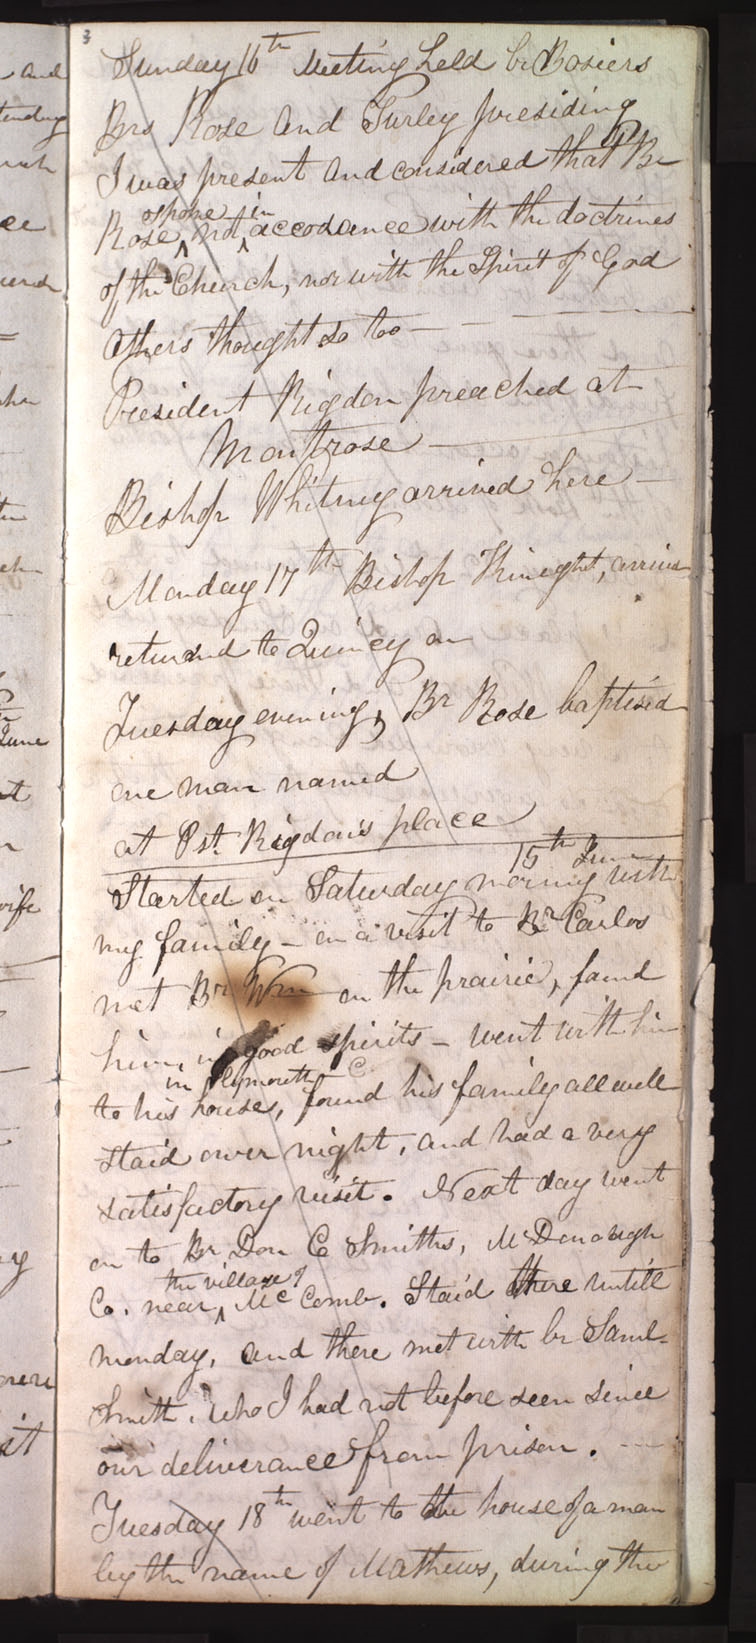 3
Sunday 16th Meeting held br Bosiers
Brs Rose and Turley presiding
I was present and considered that Br
Rose spoke not in accodance with the doctrines
of the Church, nor with the Spirit of God
others thought so too —
President Rigdon preached at
Montrose —
Bishop Whitney arrived here —
Monday 17th Bishop Kneight, arrived
returnd to Quincy on
Tuesday evening, Br Rose baptised
one man named
at Pst. Rigdon's place
15th June
Started on Saturday morning with
my family — on a visit to Br Carlos
met Br Wm on the prairie, found
him, in good spirits — went with him
in Plymouth
to his house, found his family all well
staid over night, and had a very
satisfactory visit. Next day went
on to Br Don C Smiths, McDonough
the village of
Co. near McComb. Staid there untill
monday, and there met with br Saml.
Smith, who I had not before seen since
our deliverance from prison.
Tuesday 18th went to the house of a man
by the name of Mathews, during the